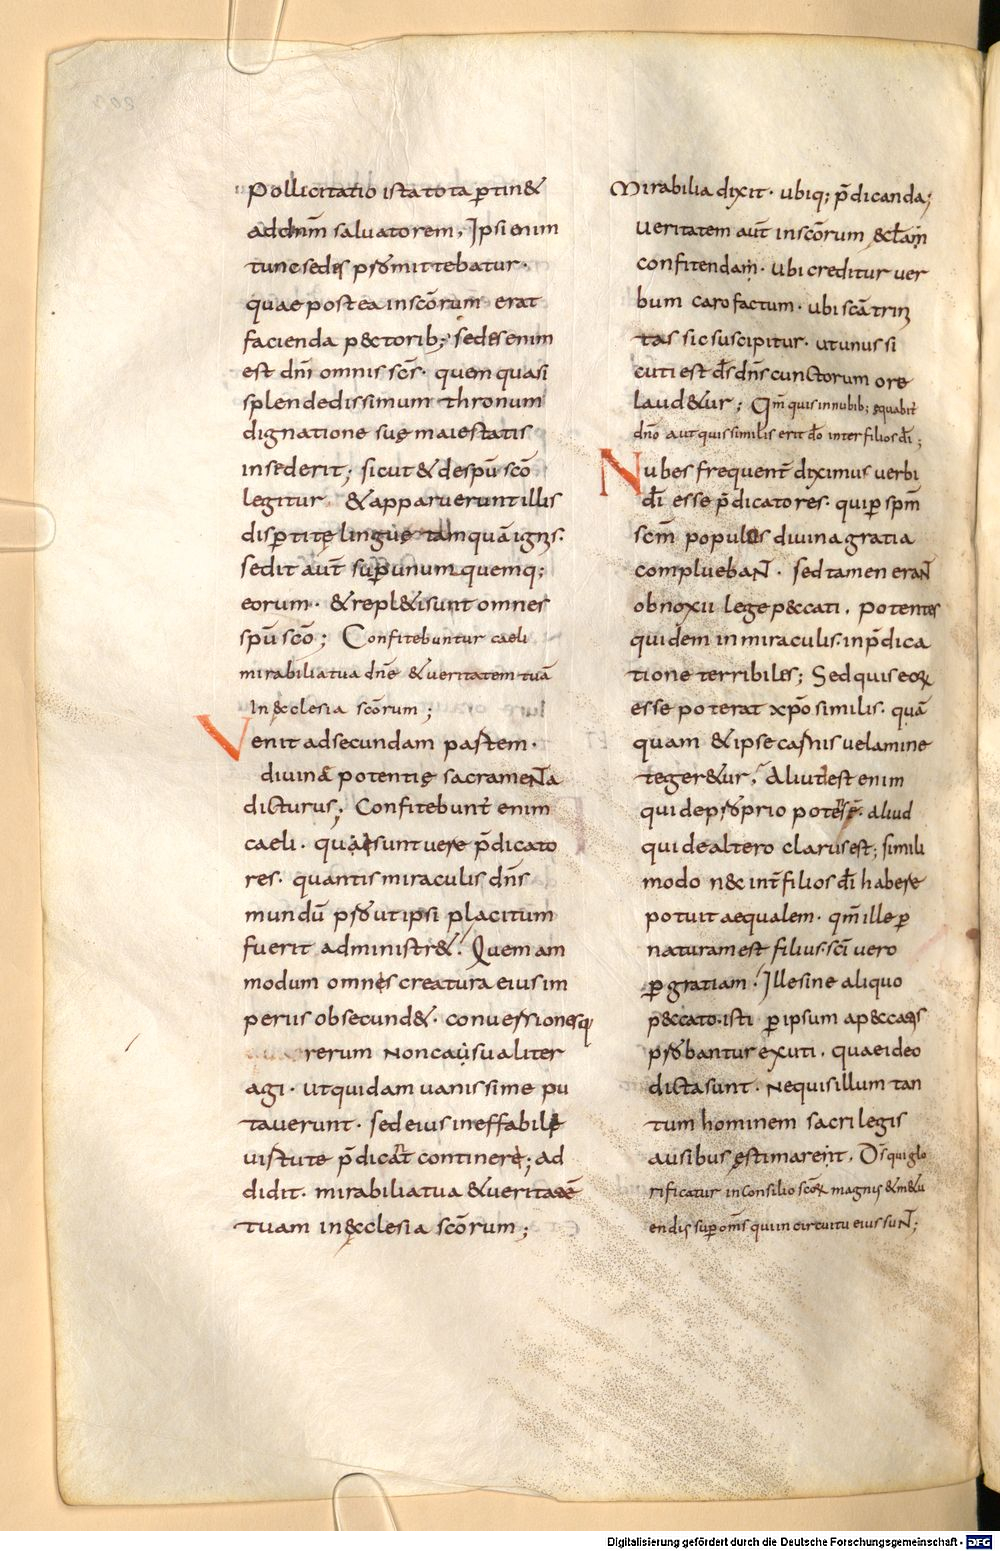 Pollicitatio ista tota ꝑtin&
ad dnm̄ saluatorem, Ipsi enim
tunc sedes ꝓmittebatur·
quae postea in scōrum erat
facienda p&ctorib; sedes enim
est dnī omnis scs̄· quem quasi
splendedissimum thronum
dignatione suę maiestatis
insederit; sicut & de spū scō
legitur & apparuerunt illis
disꝑtitę linguę tamquā ignis·
sedit aut̄ supꝑ unum quemq;
eorum· & repl&i sunt omnes
spū scō; Confitebuntur caeli
mirabilia tua dnē & ueritatem tuā
In &cclesia scōrum;
Venit ad secundam partem·
diuinę potentię sacrameNta
dicturus; Confitebunt enim
caeli· qui sunt uere p̄dicato
res· quantis miraculis dns̄
mundū ꝓut ipsi placitum
fuerit administr&. Quem am
modum omnes creatura eius im
periis obsecund&· conuersionesq
rerum Non ca su aliter
agi· ut quidam uanissime pu
tauerunt· sed eius ineffabile
uirtute p̄dicat continere; ad
didit· mirabilia tua & ueritatē
tuam in &cclesia scōrum;
Mirabilia dixit· ubiq; p̄dicanda;
ueritatem aut̄ in scōrum &cclam̄
confitendam· ubi creditur uer
bum caro factum· ubi scā trini
tas sic suscipitur· ut unus si
cuti est ds̄ dns̄ cunctorum ore
laud&ur; Qm̄ quis in nubib; equabit̄
dnō aut quis similis erit dō inter filios dī;
Nubes frequent̄ diximus uerbi
dī esse p̄dicatores· qui ꝑ spm̄
scm̄ populos diuina gratia
complueban̄t· sed tamen eraNt
obnoxii lege p&ccati. potentes
quidem in miraculis· in p̄dica
tione terribiles; Sed quis eoꝝ
esse poterat xp̄o similis· quā
quam & ipse carnis uelamine
teger&ur, Aliud est enim
qui de ꝓprio potens ē· aliud
qui de altero clarus est; simili
modo n&c int̄ filios dī habere
potuit aequalem· qm̄ ille ꝑ
naturam est filius· scī uero
ꝑ gratiam. Ille sine aliquo
p&ccato· isti ꝑ ipsum a p&ccatis
ꝓbantur exuti. quae ideo
dicta sunt· Ne quis illum tan
tum hominem sacrilegis
ausibus ęstimarent. Ds̄ qui glo
rificatur in consilio scōꝝ magnus & m&u
endus super om̄s qui in circuitu eius suNt;
Digitalisierung gefördert durch die Deutsche Forschungsgemeinschaft - DFG